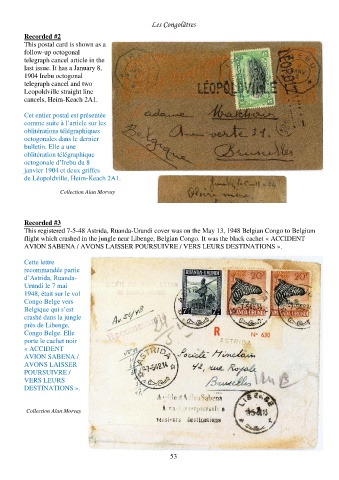 Les Congolâtres
Recorded #2
This postal card is shown as a
follow-up octogonal
telegraph cancel article in the
last issue. It has a January 8,
1904 Irebu octogonal
telegraph cancel and two
Leopoldville straight line
cancels, Heim-Keach 2A1.
Cet entier postal est présentée
comme suite à l'article sur les
oblitérations télégraphiques
octogonales dans le dernier
bulletin. Elle a une
oblitération télégraphique
octogonale d'Irebu du 8
janvier 1904 et deux griffes
de Léopoldville, Heim-Keach 2A1.
Collection Alan Morvay
LÉOPOLDVILLE
LÉOPOL
Madame
Belgique
Bruxelles
Recorded #3
This registered 7-5-48 Astrida, Ruanda-Urundi cover was on the May 13, 1948 Belgian Congo to Belgium
flight which crashed in the jungle near Libenge, Belgian Congo. It was the black cachet « ACCIDENT
AVION SABENA / AVONS LAISSER POURSUIVRE / VERS LEURS DESTINATIONS ».
Cette lettre
recommandée partie
d'Astrida, Ruanda-
Urundi le 7 mai
1948, était sur le vol
Congo Belge vers
Belgique qui s'est
crashé dans la jungle
près de Libenge,
Congo Belge. Elle
porte le cachet noir
« ACCIDENT
AVION SABENA /
AVONS LAISSER
POURSUIVRE /
VERS LEURS
DESTINATIONS ».
Collection Alan Morvay
RUANDA-URUNDI
20c
20c
R
No 630
ASTRIDA
ASTRIDA
Société Minetain
42, rue Royale
Bruxelles
LIBENGE
53